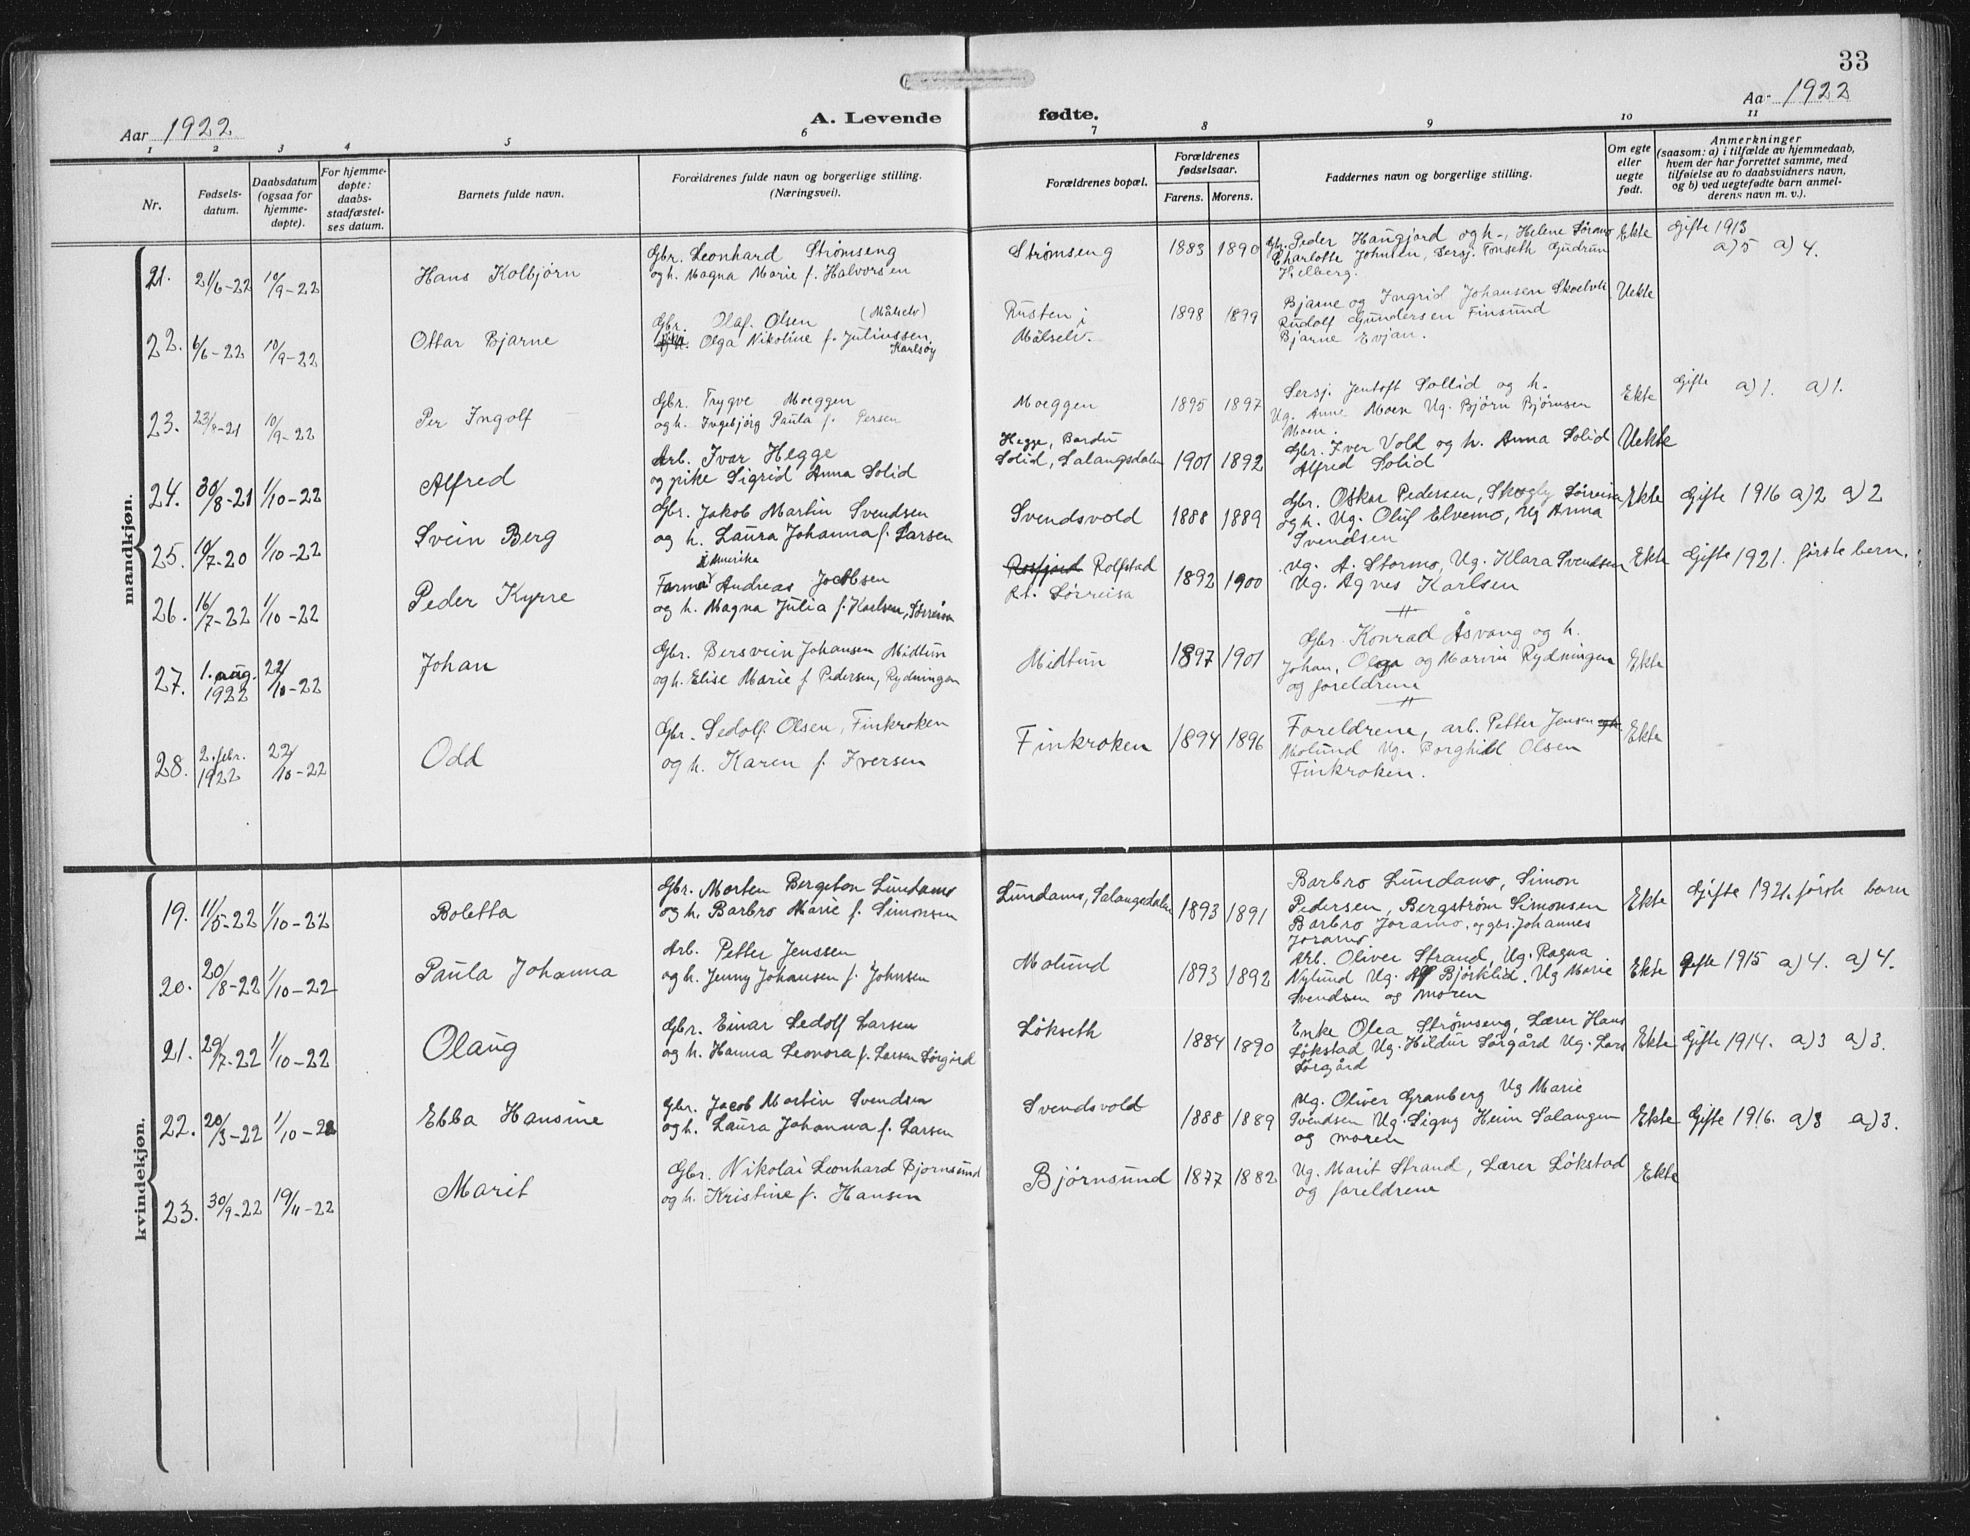 33
Aar 1922
A. Levende fødte.
Aar 1922
1 2 3 4 5 6 7 8 9 10 11
Nr.
Fødsels-
datum.
Daabsdatum
(ogsaa for
hjemme-
døpte).
For hjemme-
døpte:
daabs-
stadfæstel-
ses datum.
Barnets fulde navn.
Forældrenes fulde navn og borgerlige stilling.
(Næringsvei).
Forældrenes bopæl.
Forældrenes
fødselsaar.
Farens. Morens.
Faddernes navn og borgerlige stilling.
Om egte
eller
uegte
født.
Anmerkninger
(saasom: a) i tilfælde av hjemmedaab,
hvem der har forrettet samme, med
tilføielse av to daabsvidners navn,
og b) ved uegtefødte barn anmel-
derens navn m. v.).
mandkjøn.
21. 21/6-22 10/9-22 Hans Kolbjørn
Gbr. Leonhard Strømseng
og h. Magna Marie f. Halvorsen
Strømseng 1883 1890
Gbr. Peder Haugjord og h., Helene Søramo
Charlotte Johnsen, Sersj. Fonseth Gudrun
Kelberg.
Ekte
Gifte 1913
a) 5 a) 4.
22. 6/6-22 10/9-22 Ottar Bjarne
Gbr. Olaf Olsen (Målselv)
Olga Nikoline f. Juliussen.
Karlsøy
Rusten i
Målselv.
1898 1899
Bjarne og Ingrid Johansen Skoelvli
Rudolf Gundersen Finsund
Bjarne Evjan.
Uekte
23. 23/8-21 10/9-22 Per Ingolf
Gbr. Trygve Moeggen
og h. Ingebjörg Paula f. Persen
Moeggen 1895 1897
Sersj. Jentoft Sollid og h.
Ug. Anne Moen Ug. Bjørn Bjørnsen
Moen.
Ekte
Gifte a) 1. a) 1.
24. 30/8-21 1/10-22 Alfred
Arb. Ivar Hegge
og pike Sigrid Anna Solid
Hegge, Bardu
Solid, Salangsdalen
1901 1892
Gbr. Iver Vold og h. Anna Solid
Alfred Solid
Uekte
25. 10/7-20 1/10-22 Svein Berg
Gbr. Jakob Martin Svendsen
og h. Laura Johanna f. Larsen
Svendsvold 1888 1889
Gbr. Oskar Pedersen, Skogly Sørreisa
og h. Ug. Oluf Elvemo, Ug Anna
Svendsen
Ekte
Gifte 1916 a) 2 a) 2
26. 16/7-22 1/10-22 Peder Kyrre
i Amerika
Farmer Andreas Jacobsen
og h. Magna Julia f. Karlsen, Sørreisa
Rosfjord Rolfstad
pt. Sørreisa
1892 1900
Ug. A. Stormo, Ug. Klara Svendsen
Ug. Agnes Karlsen
Ekte
Gifte 1921. første bern.
27. 1. aug.
1922 22/10-22 Johan
Gbr. Bersvein Johansen Midtun
og h. Elise Marie f. Pedersen, Rydningen
Midtun 1897 1901
Gbr. Konrad Åsvang og h.
Johan, Olga og Marvin Rydningen
og foreldrene
Ekte
28. 2. febr.
1922 22/10-22 Odd
Gbr. Sedolf Olsen, Finkroken
og h. Karen f. Iversen
Finkroken 1894 1896
Foreldrene, arb. Petter Jensen og h.
Molund Ug. Borghild Olsen
Finkroken.
Ekte
kvindekjøn.
19. 11/5-22 1/10-22 Boletta
Gbr. Morten Bergeton Lundamo
og h. Barbro Marie f. Simonsen
Lundamo, Salangsdalen 1893 1891
Barbro Lundamo, Simon
Pedersen, Bergstrøm Simonsen
Barbro Joramo, og gbr. Johannes
Joramo.
Ekte
Gifte 1921. første barn
20. 20/8-22 1/10-22 Paula Johanna
Arb. Petter Jenssen
og h. Jenny Johansen f. Johnsen
Molund 1893 1892
Arb. Oliver Strand, Ug. Ragna
Nylund Ug. Alf Bjørklid. Ug Marie
Svendsen og moren
Ekte
Gifte 1915 a) 4. a) 4.
21. 29/7-22 1/10-22 Olaug
Gbr. Einar Sedolf Larsen
og h. Hanna Leonora f. Larsen Sørgård
Løkseth 1884 1890
Enke Olea Strømseng, Lærer Hans
Løkstad Ug. Hildur Sørgård Ug. Lars
Sørgård
Ekte
Gifte 1914. a) 3 a) 3.
22. 20/3-22 1/10-22 Ebba Hansine
Gbr. Jacob Martin Svendsen
og h. Laura Johanna f. Larsen
Svendsvold 1888 1889
Ug. Oliver Granberg Ug Marie
Svendsen Ug. Signy Heim Salangen
og moren
Ekte
Gifte 1916. a) 3 a) 3.
23. 30/9-22 19/11-22 Marit
Gbr. Nikolai Leonhard Bjornsund
og h. Kristine f. Hansen
Bjørnsund 1877 1882
Ug. Marit Strand, Lærer Løkstad
og foreldrene
Ekte